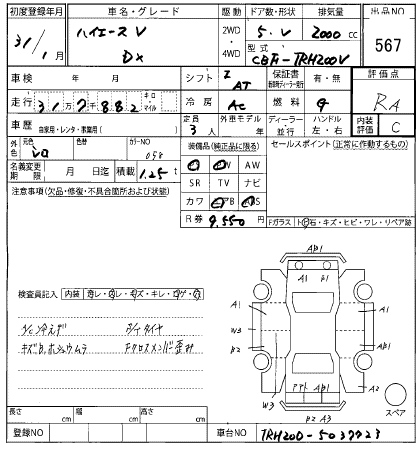 初度登録年月 車名・グレード 駆動 ドア数・形状 排気量 出品NO
31/1月 ハイエースV DX 2WD・4WD 5・V 2000cc 567
型式 CBF-TRH200V
車検 年 月 シフト I AT 保証書 有・無 評価点
走行 31万7千882 キロ マイル 冷房 AC 燃料 G RA
車歴 自家用・レンタ・営業用( ) 定員 3人 外車モデル 年 ディーラー・並行 ハンドル 左・右 内装評価 C
外色 元色 シロ 色替 カラーNO 058 装備品(純正品に限る) セールスポイント(正常に作動するもの)
PW AW
名義変更期限 月 日迄 積載 1.25t SR TV ナビ
注意事項(欠品・修復・不具合箇所および状態) カワ
R券 9,550円 Fガラス ト石・キズ・ヒビ・ワレ・リペア跡
検査員記入 内装
A/C冷えず タイヤ
キズ ボシュウムラ Fクロスメンバー歪み
AB1
A1 B1
A1 A1
W3 AB1
B2
W3 AB1 A2
B2 A3
スペア
長さ cm 幅 cm 高さ cm
登録NO 車台NO TRH200-5037723